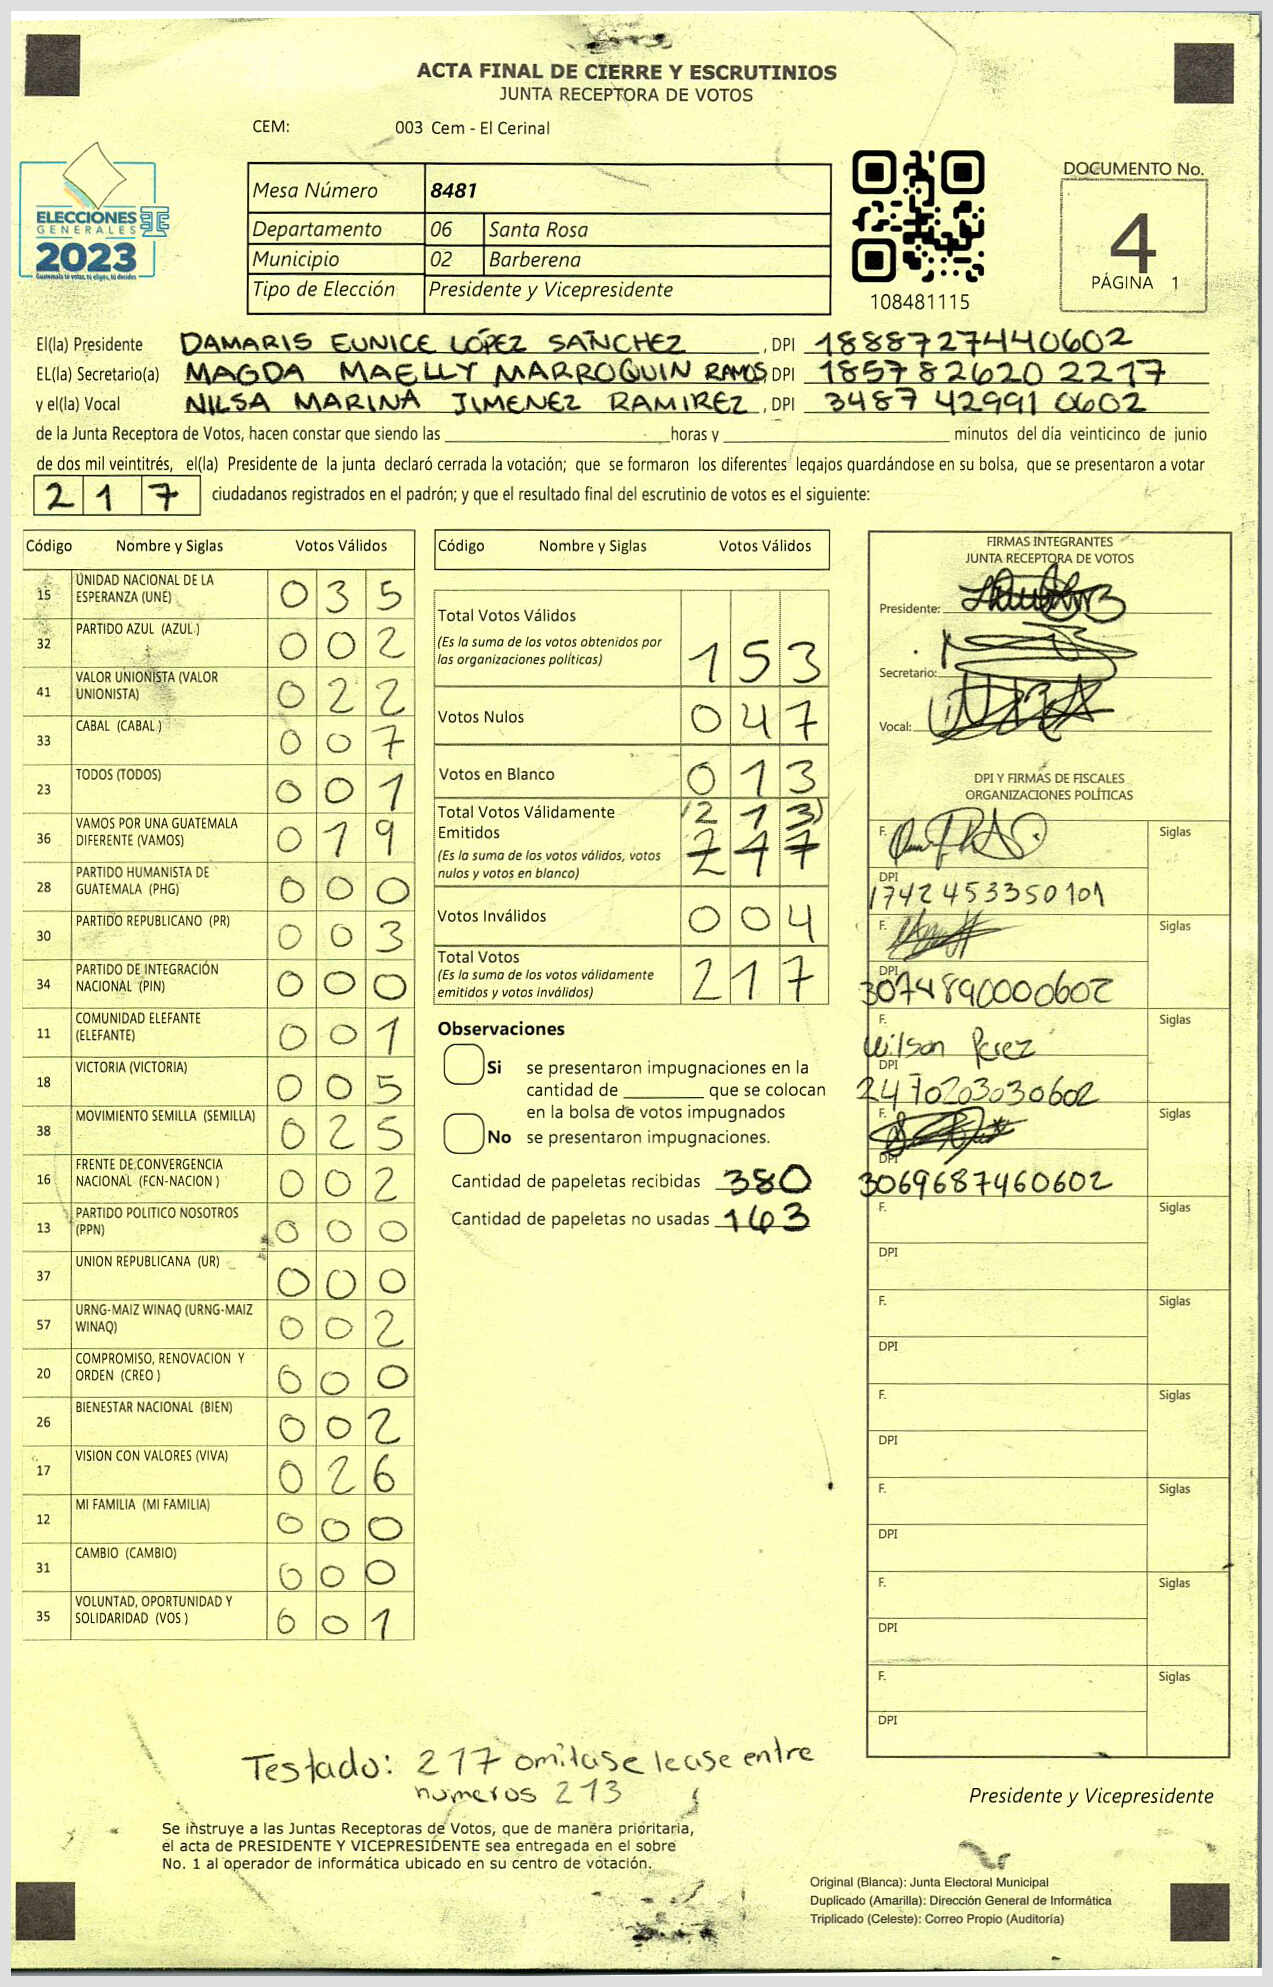 ACTA FINAL DE CIERRE Y ESCRUTINIOS
JUNTA RECEPTORA DE VOTOS
CEM: 003 Cem - El Cerinal
ELECCIONES
GENERALES
2023
Guatemala tú votas, tú eliges, tú decides
Mesa Número 8481
Departamento 06 Santa Rosa
Municipio 02 Barberena
Tipo de Elección Presidente y Vicepresidente
108481115
DOCUMENTO No.
4
PÁGINA 1
El(la) Presidente DAMARIS EUNICE LÓPEZ SANCHEZ, DPI 1888727440602
EL(la) Secretario(a) MAGDA MAELLY MARROQUIN RAMOS, DPI 1857826202217
y el(la) Vocal NILSA MARINA JIMENEZ RAMIREZ, DPI 3487429910602
de la Junta Receptora de Votos, hacen constar que siendo las ____ horas y ____ minutos del día veinticinco de junio
de dos mil veintitrés, el(la) Presidente de la junta declaró cerrada la votación; que se formaron los diferentes legajos guardándose en su bolsa, que se presentaron a votar
217 ciudadanos registrados en el padrón; y que el resultado final del escrutinio de votos es el siguiente:
Código Nombre y Siglas Votos Válidos
15 UNIDAD NACIONAL DE LA ESPERANZA (UNE) 035
32 PARTIDO AZUL (AZUL) 002
41 VALOR UNIONISTA (VALOR UNIONISTA) 022
33 CABAL (CABAL) 007
23 TODOS (TODOS) 001
36 VAMOS POR UNA GUATEMALA DIFERENTE (VAMOS) 019
28 PARTIDO HUMANISTA DE GUATEMALA (PHG) 000
30 PARTIDO REPUBLICANO (PR) 003
34 PARTIDO DE INTEGRACIÓN NACIONAL (PIN) 000
11 COMUNIDAD ELEFANTE (ELEFANTE) 001
18 VICTORIA (VICTORIA) 005
38 MOVIMIENTO SEMILLA (SEMILLA) 025
16 FRENTE DE CONVERGENCIA NACIONAL (FCN-NACION) 002
13 PARTIDO POLITICO NOSOTROS (PPN) 000
37 UNION REPUBLICANA (UR) 000
57 URNG-MAIZ WINAQ (URNG-MAIZ WINAQ) 002
20 COMPROMISO, RENOVACION Y ORDEN (CREO) 000
26 BIENESTAR NACIONAL (BIEN) 002
17 VISION CON VALORES (VIVA) 026
12 MI FAMILIA (MI FAMILIA) 000
31 CAMBIO (CAMBIO) 000
35 VOLUNTAD, OPORTUNIDAD Y SOLIDARIDAD (VOS) 001
Código Nombre y Siglas Votos Válidos
Total Votos Válidos
(Es la suma de los votos obtenidos por
las organizaciones políticas) 153
Votos Nulos 047
Votos en Blanco 013
Total Votos Válidamente (213)
Emitidos 217
(Es la suma de los votos válidos, votos
nulos y votos en blanco)
Votos Inválidos 004
Total Votos 217
(Es la suma de los votos válidamente
emitidos y votos inválidos)
Observaciones
Si se presentaron impugnaciones en la
cantidad de ____ que se colocan
en la bolsa de votos impugnados
No se presentaron impugnaciones.
Cantidad de papeletas recibidas 380
Cantidad de papeletas no usadas 163
FIRMAS INTEGRANTES
JUNTA RECEPTORA DE VOTOS
Presidente:
Secretario:
Vocal:
DPI Y FIRMAS DE FISCALES
ORGANIZACIONES POLÍTICAS
F. Siglas
DPI 1742453350101
F. Siglas
DPI 3074890000602
F. Wilson Perez Siglas
DPI 2470203030602
F. Siglas
DPI 3069687460602
F. Siglas
DPI
F. Siglas
DPI
F. Siglas
DPI
F. Siglas
DPI
F. Siglas
DPI
F. Siglas
DPI
Testado: 217 omitase lease entre
numeros 213
Presidente y Vicepresidente
Se instruye a las Juntas Receptoras de Votos, que de manera prioritaria,
el acta de PRESIDENTE Y VICEPRESIDENTE sea entregada en el sobre
No. 1 al operador de informática ubicado en su centro de votación.
Original (Blanca): Junta Electoral Municipal
Duplicado (Amarilla): Dirección General de Informática
Triplicado (Celeste): Correo Propio (Auditoría)